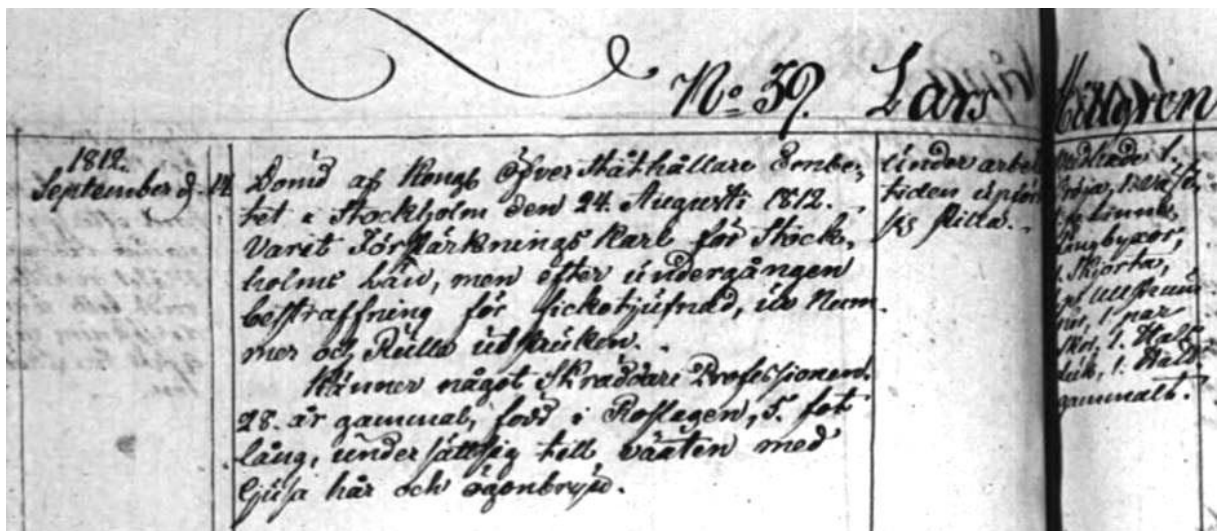 No 39. Lars Hillgren
1812.
September d. 14.
Dömd af Kongl Öfver Ståthållare Embe,
tet i Stockholm den 24. Augusti 1812.
Varit Förstärknings Karl för Stock,
holms Län, men efter undergången
bestraffning för ficktjufnad, ur Num
mer och Rulla utstruken.
Känner något Skräddare Professionen.
28. år gammal, född i Roslagen, 5. fot
lång, undersättsig till växten med
ljusa hår och ögonbryn.
Under arbets
tiden
sig stilla.
Medhade 1.
tröja,
linne
långbyxor,
1. Skjorta,
1 par
skor, 1. Hals
duk, 1. Hatt.
gammalt.